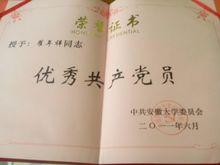 荣誉证书
HONOR CREDENTIAL
授予：崔年祥同志
优秀共产党员
中共安徽大学委员会
二〇一一年六月